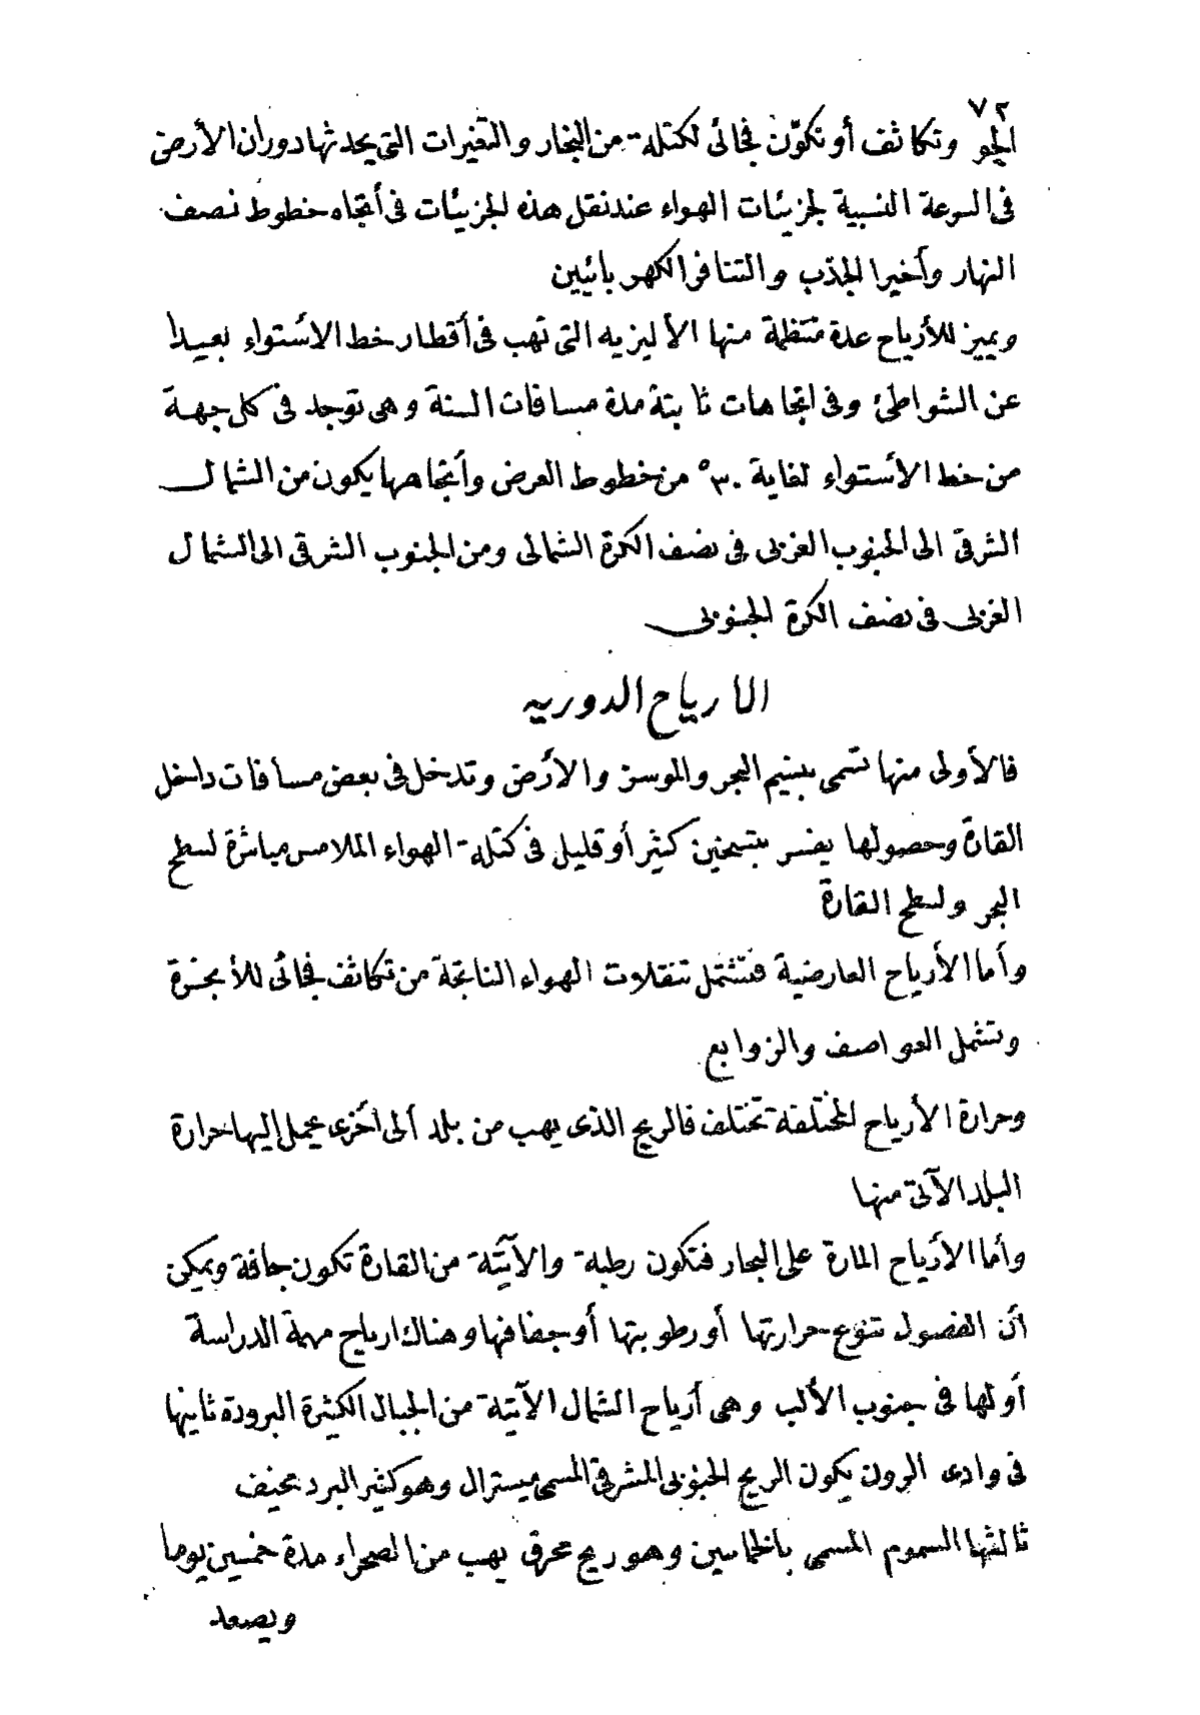 ٧٢
الجو وتكاثف أو تكوّن فجائى لكتلة من البخار والتغيرات التى يحدثها دوران الأرض
فى السرعة النسبية لجزيئات الهواء عند نقل هذه الجزيئات فى أتجاه خطوط نصف
النهار وأخيرا الجذب والتنافر الكهربائيين
ويميز للأرياح عدة منتظمة منها الأليزيه التى تهب فى أقطار خط الاستواء بعيدا
عن الشواطئ وفى اتجاهات ثابتة مدة مسافات السنة وهى توجد فى كل جهة
من خط الأستواء لغاية ٣٠° من خطوط العرض وأتجاهها يكون من الشمال
الشرقى الى الجنوب الغربى فى نصف الكرة الشمالى ومن الجنوب الشرقى الى الشمال
الغربى فى نصف الكرة الجنوبى
الارياح الدوريه
فالأولى منها تسمى بنسيم البحر والموسن والأرض وتدخل فى بعض مسافات داخل
القارة وحصولها يفسر بتسخين كثير أو قليل فى كتلة الهواء الملامس مباشرة لسطح
البحر ولسطح القارة
وأما الأرياح العارضية فتشتمل تنقلات الهواء الناتجة من تكاثف فجائى للأبخرة
وتشمل العواصف والزوابع
وحرارة الأرياح المختلفة تختلف فالريح الذى يهب من بلد ألى أخرى يحمل إليها حرارة
البلد الآتى منها
وأما الأرياح المارة على البحار فتكون رطبة والآتية من القارة تكون جافة ويمكن
أن الفصول تنوع حرارتها أو رطوبتها أو جفافها وهناك ارياح مهمة الدراسة
أولها فى جنوب الألب وهى أرياح الشمال الآتية من الجبال الكثيرة البرودة ثانيها
فى وادى الرون يكون الريح الجنوبى المشرقى المسمى ميسترال وهو كثير البرد عنيف
ثالثها السموم المسمى بالخماسين وهو ريح محرق يهب من الصحراء مدة خمسين يوما
ويصعد